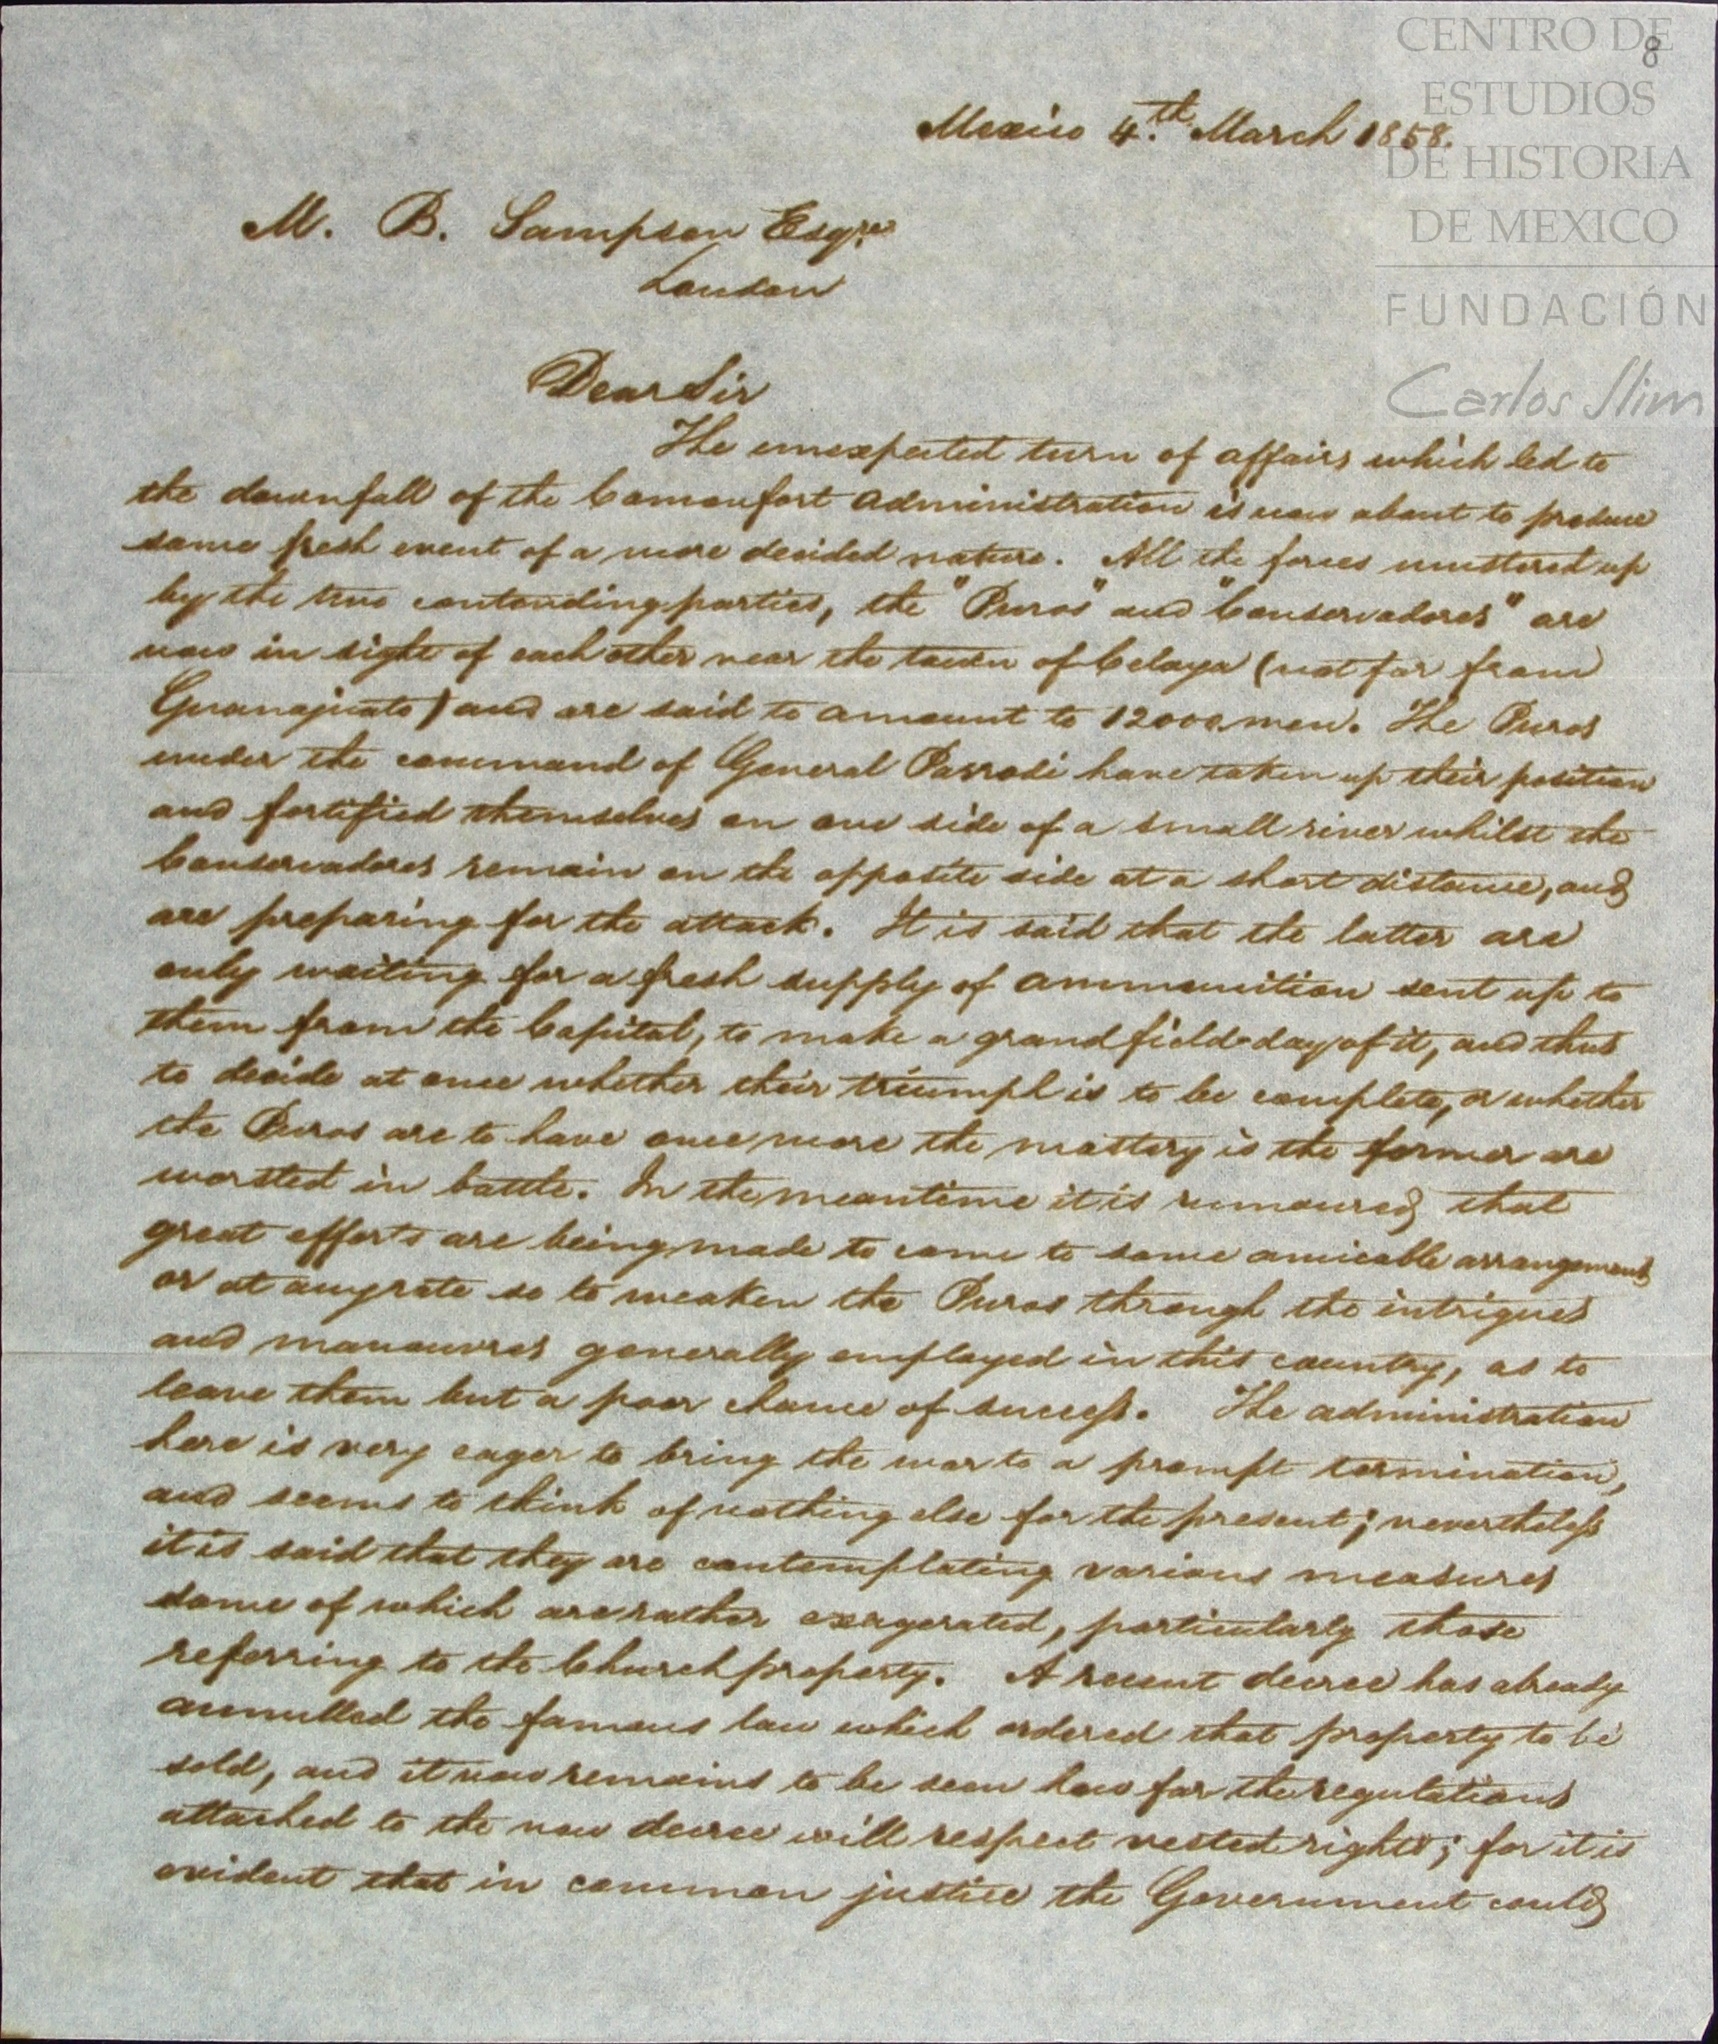 8
CENTRO DE
ESTUDIOS
DE HISTORIA
DE MEXICO
FUNDACIÓN
Carlos Slim
Mexico 4.th March 1858.
M. B. Sampson Esqre
London
Dear Sir
The unexpected turn of affairs which led to
the downfall of the Comonfort administration is now about to produce
some fresh event of a more decided nature. All the forces mustered up
by the two contending parties, the "Puros" and "Conservadores" are
now in sight of each other near the town of Celaya (not far from
Guanajuato) and are said to amount to 12000 men. The Puros
under the command of General Parrodi have taken up their position
and fortified themselves on one side of a small river whilst the
Conservadores remain on the opposite side at a short distance, and
are preparing for the attack. It is said that the latter are
only waiting for a fresh supply of ammunition sent up to
them from the Capital, to make a grand field-day of it, and thus
to decide at once whether their triumph is to be complete, or whether
the Puros are to have once more the mastery is the former are
worsted in battle. In the meantime it is rumoured that
great efforts are being made to come to some amicable arrangement
or at anyrate so to weaken the Puros through the intrigues
and manouvres generally employed in this country, as to
leave them but a poor chance of success. The administration
here is very eager to bring the war to a prompt termination,
and seems to think of nothing else for the present; nevertheless
it is said that they are contemplating various measures
some of which are rather exagerated, particularly those
referring to the Church property. A recent decree has already
annulled the famous law which ordered that property to be
sold, and it now remains to be seen how far the regulations
attached to the new decree will respect vested rights; for it is
evident that in common justice the Government could